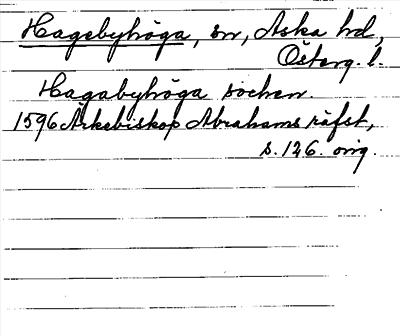 Hagebyhöga, sn, Aska hd,
Österg. l.
Hagabyhöga sochen.
1596 Ärkebiskop Abrahams räfst,
s. 126. orig.